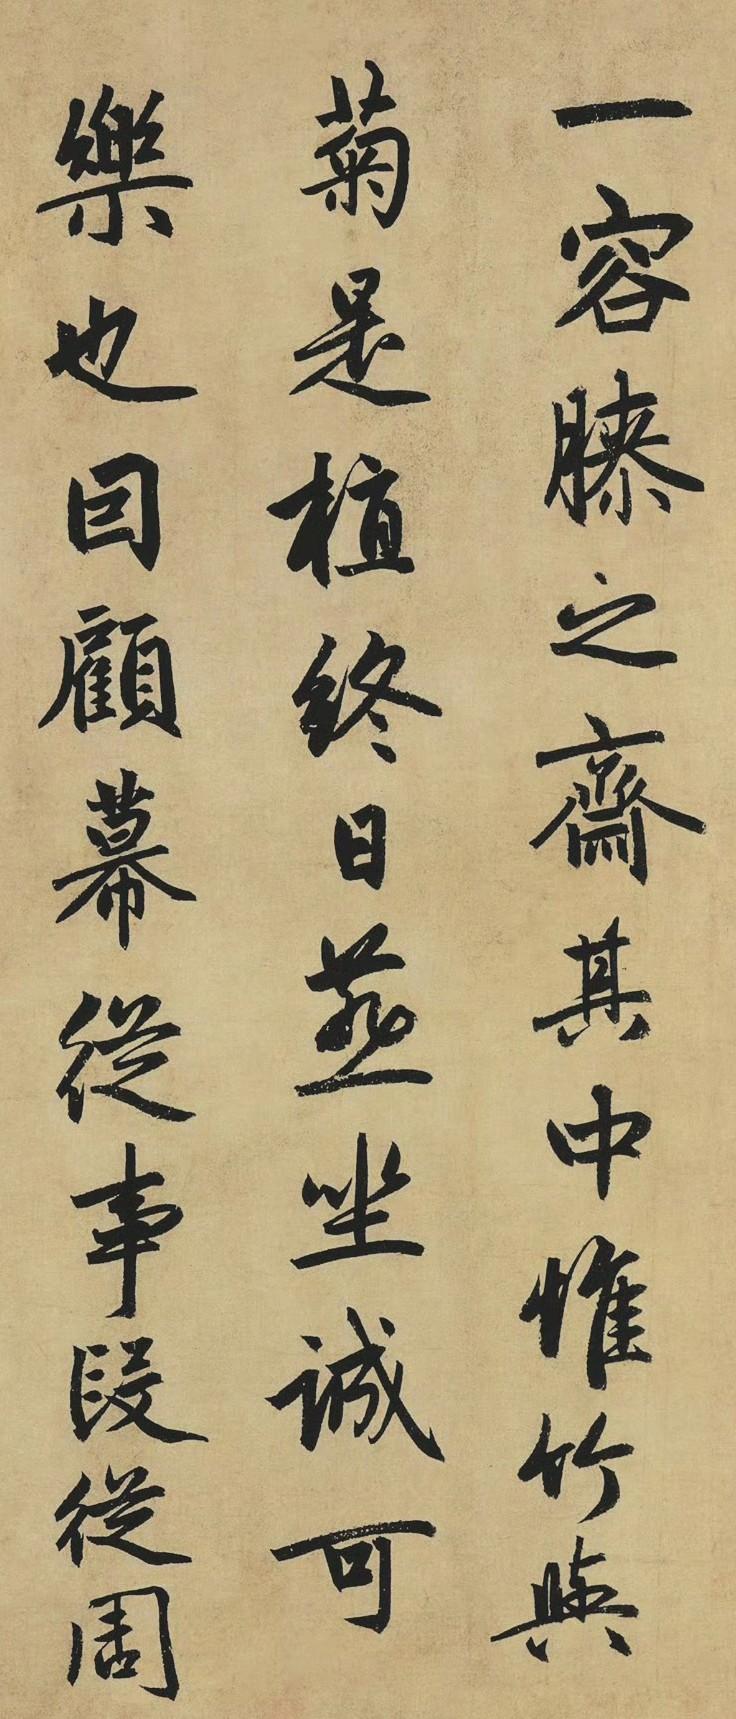 一容膝之齋其中惟竹與
菊是植終日燕坐誠可
樂也回顧幕從事段從周